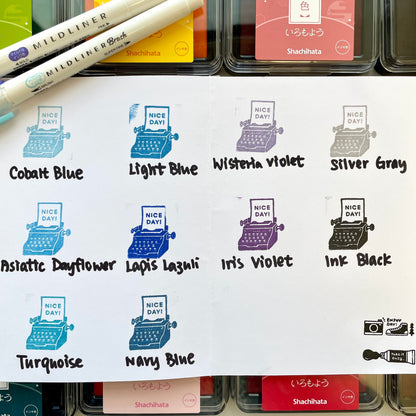 MILDLINER
MILDLINER Brush
色
いろもよう
Shachihata
いろもよう
Shachihata
NICE DAY!
Cobalt Blue
NICE DAY!
Light Blue
NICE DAY!
Wisteria Violet
NICE DAY!
Silver Gray
NICE DAY!
Asiatic Dayflower
NICE DAY!
Lapis Lazuli
NICE DAY!
Iris Violet
NICE DAY!
Ink Black
NICE DAY!
Turquoise
NICE DAY!
Navy Blue
ENJOY
いろもよう
Shachihata
いろもよう
Shachihata